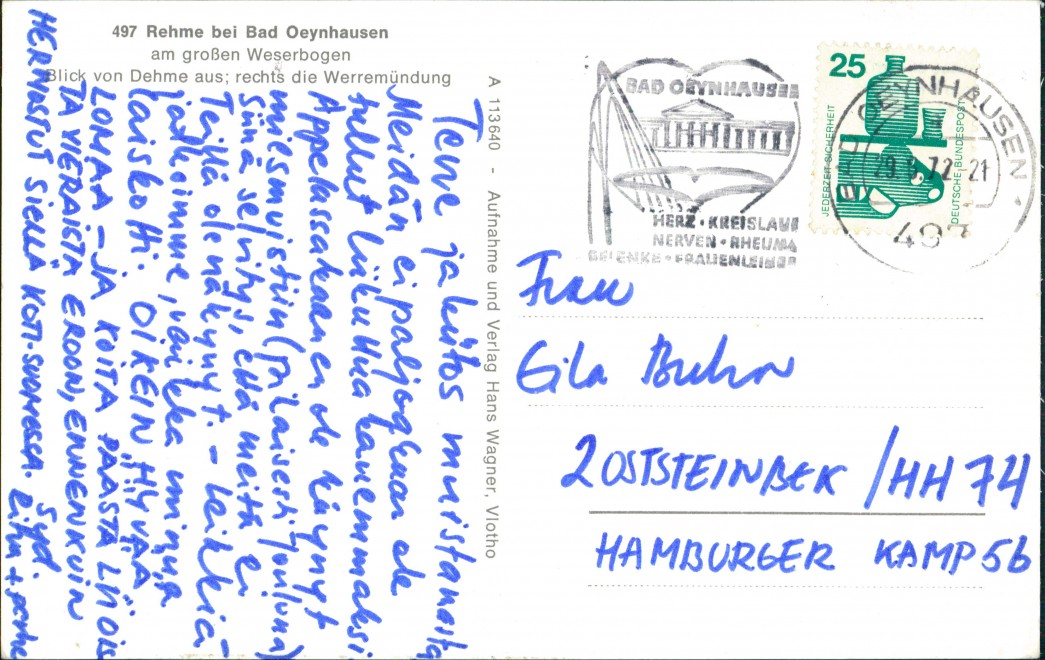 497 Rehme bei Bad Oeynhausen
am großen Weserbogen
Blick von Dehme aus; rechts die Werremündung
A 113640 - Aufnahme und Verlag Hans Wagner, Vlotho
Terve ja kiitos muistamista
Meidän ei paljoakaan ole
tullut liikuttua kauemmaksi
Appelassakaan en ole käynyt
milsmuistiin (
siinä selvitys, että meitä ei
Teillä ole näkynyt. - leikkiä-
jatkoimme, vaikka minua
laiskotti. OIKEIN HYVÄÄ
LOMAA - JA KOITA PÄÄSTÄ LIIOIS
TA VIERAISTA EROON, ENNENKUIN
HERMOSTUT SIELLÄ KOTI-SUOMESSA. Syd.
+ perhe
BAD OEYNHAUSEN
HERZ · KREISLAUF
NERVEN · RHEUMA
GELENKE · FRAUENLEIDEN
25
JEDERZEIT SICHERHEIT
DEUTSCHE BUNDESPOST
BAD OEYNHAUSEN
29.8.72-21
497
Frau
Eila Buhr
2 OSTSTEINBEK / HH 74
HAMBURGER KAMP 5b